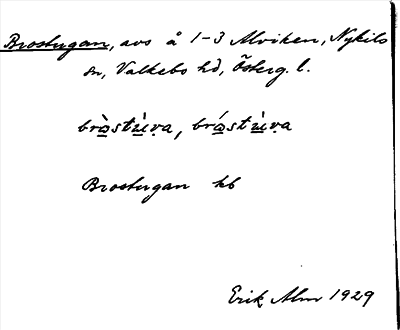 Brostugan, avs å 1-3 Alviken, Nykils
sn, Valkebo hd, Österg. l.
brò̲stù̲ṿa, bró̲stù̲ṿa
Brostugan hb
Erik Alm 1929